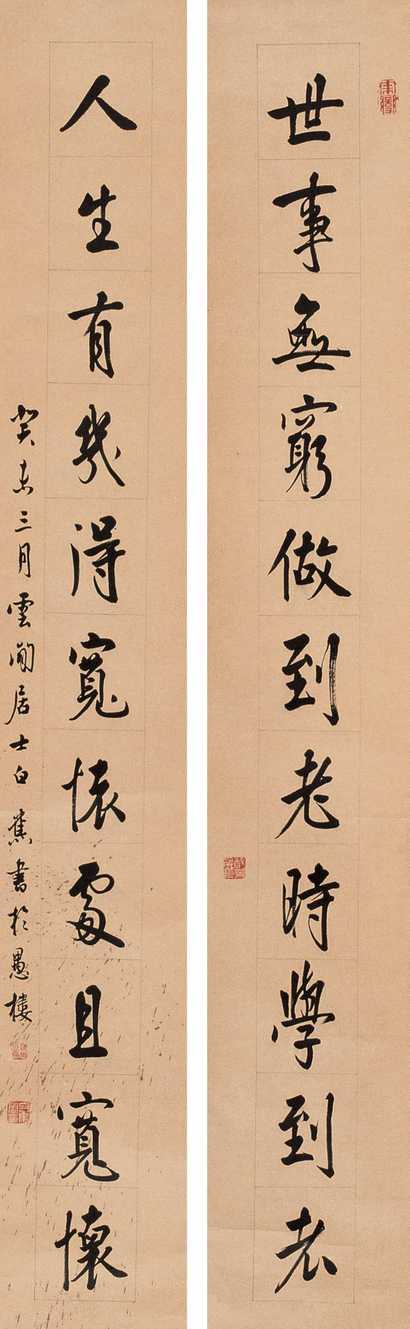 世事無窮做到老時學到老
人生有幾得寬懷處且寬懷
癸未三月雲間居士白蕉書於愚樓